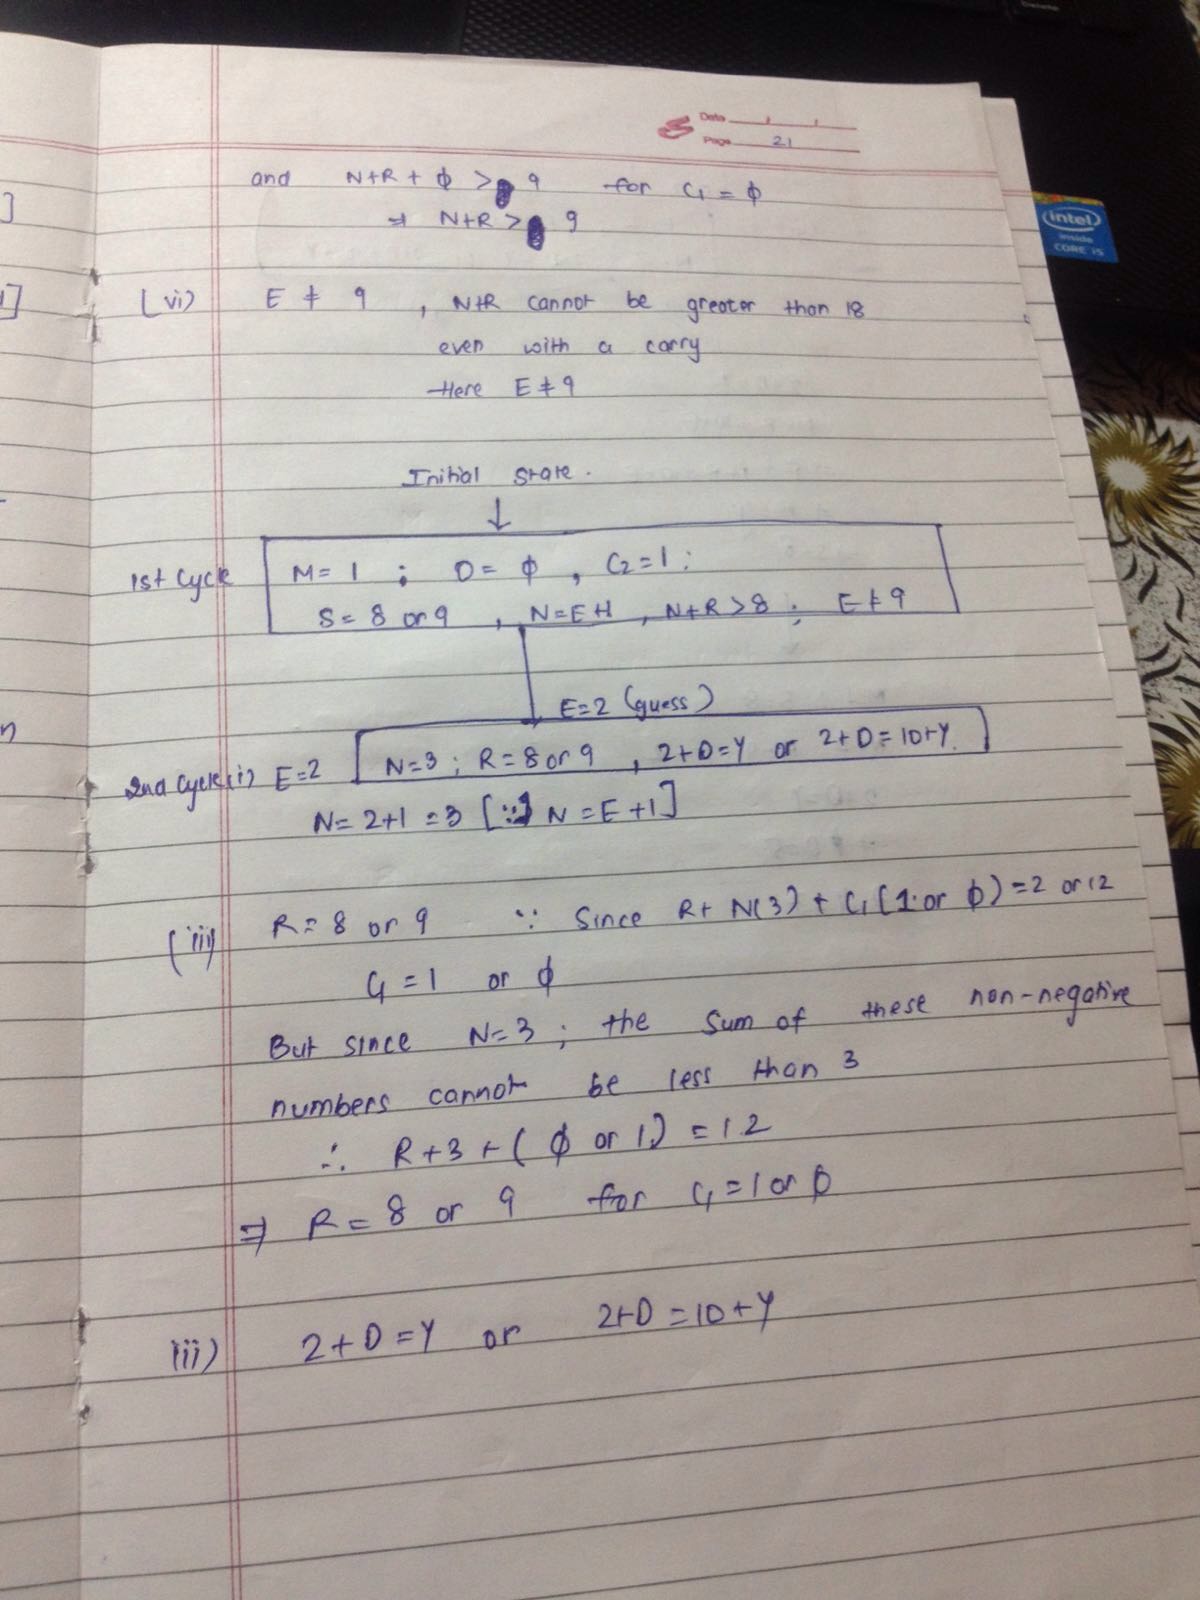 Date
Page 21
and N+R + ϕ > 9 for C1 = ϕ
⇒ N+R > 9
]
(vi) E ≠ 9 , N+R cannot be greater than 18
even with a carry
Here E ≠ 9
Initial State.
↓
1st Cycle M = 1 ; O = ϕ , C2 = 1 ;
S = 8 or 9 , N = E+1 , N+R > 8 ; E ≠ 9
E = 2 (guess)
2nd Cycle (i) E = 2 N = 3 ; R = 8 or 9 , 2+D = Y or 2+D = 10+Y
N = 2+1 = 3 [∵ N = E+1]
(ii) R = 8 or 9 ∵ Since R + N(3) + C1 (1 or ϕ) = 2 or 12
C1 = 1 or ϕ
But since N = 3 ; the sum of these non-negative
numbers cannot be less than 3
∴ R+3+( ϕ or 1) = 12
⇒ R = 8 or 9 for C1 = 1 or ϕ
iii) 2+D = Y or 2+D = 10+Y
intel
inside
CORE i5
Delete